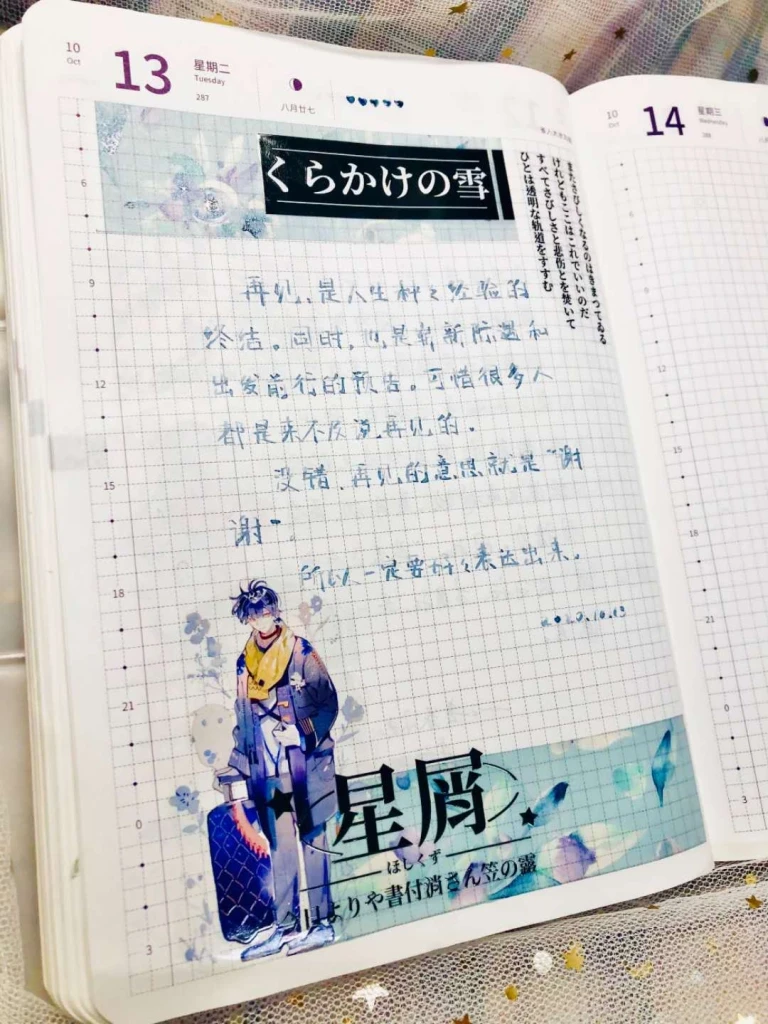 10
Oct
13
星期二
Tuesday
287
八月廿七
くらかけの雪
またさびしくなるのはきまってゐる
けれどもここはこれでいいのだ
すべてさびしさと悲傷とを焚いて
ひとは透明な軌道をすすむ
再见,是人生种々经验的
终结。同时,也是崭新际遇和
出发前行的预告。可惜很多人
都是来不及说再见的。
没错,再见的意思就是“谢
谢”。
所以一定要好々表达出来。
2020.10.13
6
9
12
15
18
21
0
3
星屑
ほしくず
今日よりや書付消さん笠の露
10
Oct
14
星期三
Wednesday
288
15
18
21
0
3